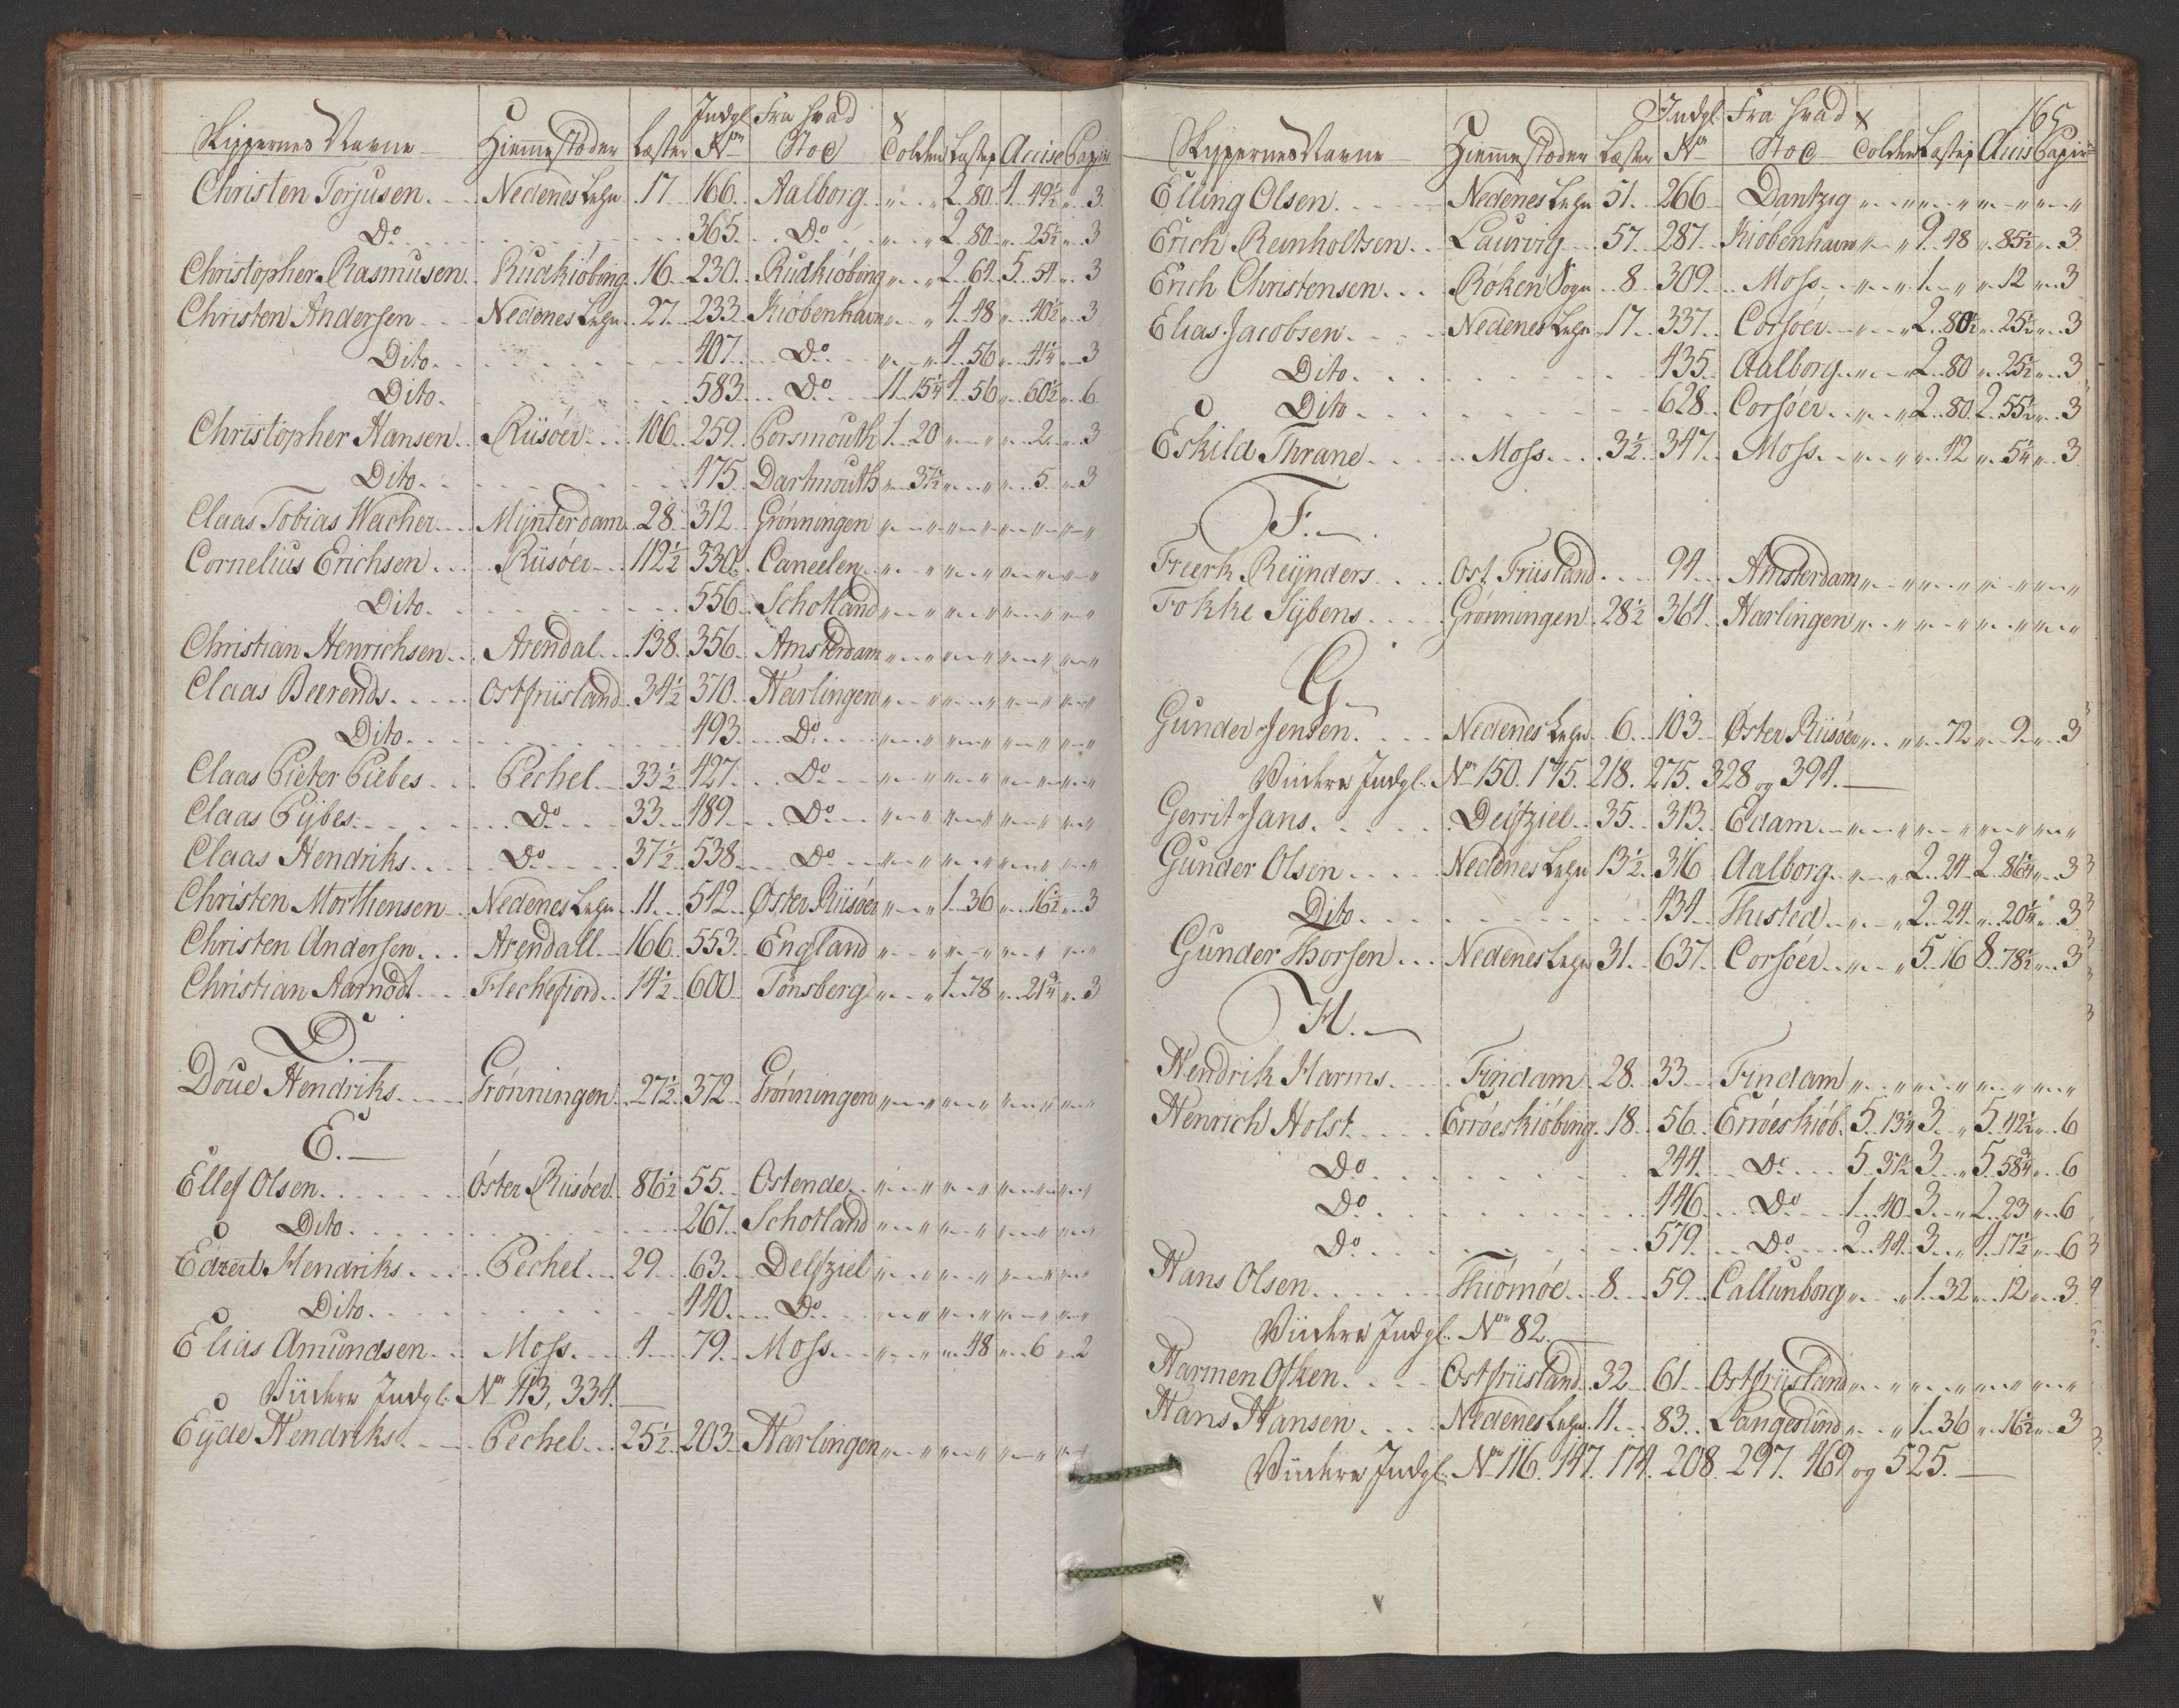 Skippernes Navne Hiemmestæder Læster Indgl. Nr. Fra hvad Stæd Tolden Lastep Accise Papir
Christen Torjusen Nedenes Lehn 17 166 Aalborg " " 2 80 4 49½ " 3
Do 365 Do " " 2 80 " 25½ " 3
Christopher Rasmusen Rudkiöbing 16 230 Rudkiöbing " " 2 64 5 54 " 3
Christen Andersen Nedenes Lehn 27 233 Kiöbenhavn " " 4 48 " 40½ " 3
Dito 407 Do " " 4 56 " 41¼ " 3
Dito 583 Do 11 15¼ 4 56 " 60½ " 6
Christopher Hansen Riisöer 106 259 Porsmouth 1 20 " " " 2 " 3
Dito 475 Dartmouth " 37½ " " " 5 " 3
Claas Tobias Wacher Mynterdam 28 312 Grönningen " " " " " " " "
Cornelius Erichsen Riisöer 112½ 330 Caneelen " " " " " " " "
Dito 556 Schotland " " " " " " " "
Christian Henrichsen Arendal 138 356 Amsterdam " " " " " " " "
Claas Beerends Ostfriisland 34½ 370 Harlingen " " " " " " " "
Dito 493 Do " " " " " " " "
Claas Pieter Piebes Pechel 33½ 427 Do " " " " " " " "
Claas Pybes Do 33 489 Do " " " " " " " "
Claas Hendriks Do 37½ 538 Do " " " " " " " "
Christen Morthensen Nedenes Lehn 11 542 Öster Riisöer " " 1 36 " 16½ " 3
Christen Andersen Arendall 166 553 England " " " " " " " "
Christian Aarnodt Flechefiord 14½ 600 Tönsberg " " 1 78 " 21¾ " 3
D.
Doue Hendriks Grönningen 27½ 372 Grönningen " " " " " " " "
E.
Ellef Olsen Öster Riisöer 86½ 55 Ostende " " " " " " " "
Dito 267 Schotland " " " " " " " "
Edzert Hendriks Pechel 29 63 Delfziel " " " " " " " "
Dito 440 Do " " " " " " " "
Elias Amundsen Moss 4 79 Moss " " " 48 " 6 " 2
Viidere Indgl. No 113, 334.
Eyde Hendriks Pechel 25½ 203 Harlingen " " " " " " " "
165
Skippernes Navne Hiemmestæder Læster Indgl. Nr. Fra hvad Stæd Tolden Lastep Accis Papir
Elling Olsen Nedenes Lehn 51 266 Dantzig " " " " " " " "
Erich Reinholtsen Laurvig 57 287 Kiöbenhavn " " 9 48 " 85½ " 3
Erich Christensen Röken Sogn 8 309 Moss " " 1 " " 12 " 3
Elias Jacobsen Nedenes Lehn 17 337 Corsöer " " 2 80 " 25½ " 3
Dito 435 Aalborg " " 2 80 " 25½ " 3
Dito 628 Corsöer " " 2 80 2 55½ " 3
Eskild Thrane Moss 3½ 347 Moss " " " 42 " 5¼ " 3
F.
Freerk Reynders Ost Friisland 94 Amsterdam " " " " " " " "
Fokke Sybens Grönningen 28½ 364 Harlingen " " " " " " " "
G
Gunder Jensen Nedenes Lehn 6 103 Öster Riisöer " " " 72 " 9 " 3
Viidere Indgl. No 150. 175. 218. 275. 328 og 394.
Gerrit Jans Delfziel 35 313 Edam " " " " " " " "
Gunder Olsen Nedenes Lehn 13½ 316 Aalborg " " 2 24 2 86¼ " 3
Dito 434 Thisted " " 2 24 " 20¼ " 3
Gunder Thorsen Nedenes Lehn 31 637 Corsöer " " 5 16 8 78½ " 3
H.
Hendrik Harms Findam 28 33 Findam " " " " " " " "
Henrich Holst Erröeskiöbing 18 56 Erröeskiöb. 5 13¼ 3 " 5 42½ " 6
Do 244 Do 5 31½ 3 " 5 58¾ " 6
Do 446 Do 1 40 3 " 2 23 " 6
Do 579 Do 2 44 3 " 4 17½ " 6
Hans Olsen Thiömöe 8 59 Callunborg " " 1 32 " 12 " 3
Viidere Indgl. No 82.
Harmen Ofken Ostfriisland 32 61 Ostfriisland " " " " " " " "
Hans Hansen Nedenes Lehn 11 83 Langesund " " 1 36 " 16½ " 3
Viidere Indgl. No 116. 147. 174. 208. 297. 469 og 525.